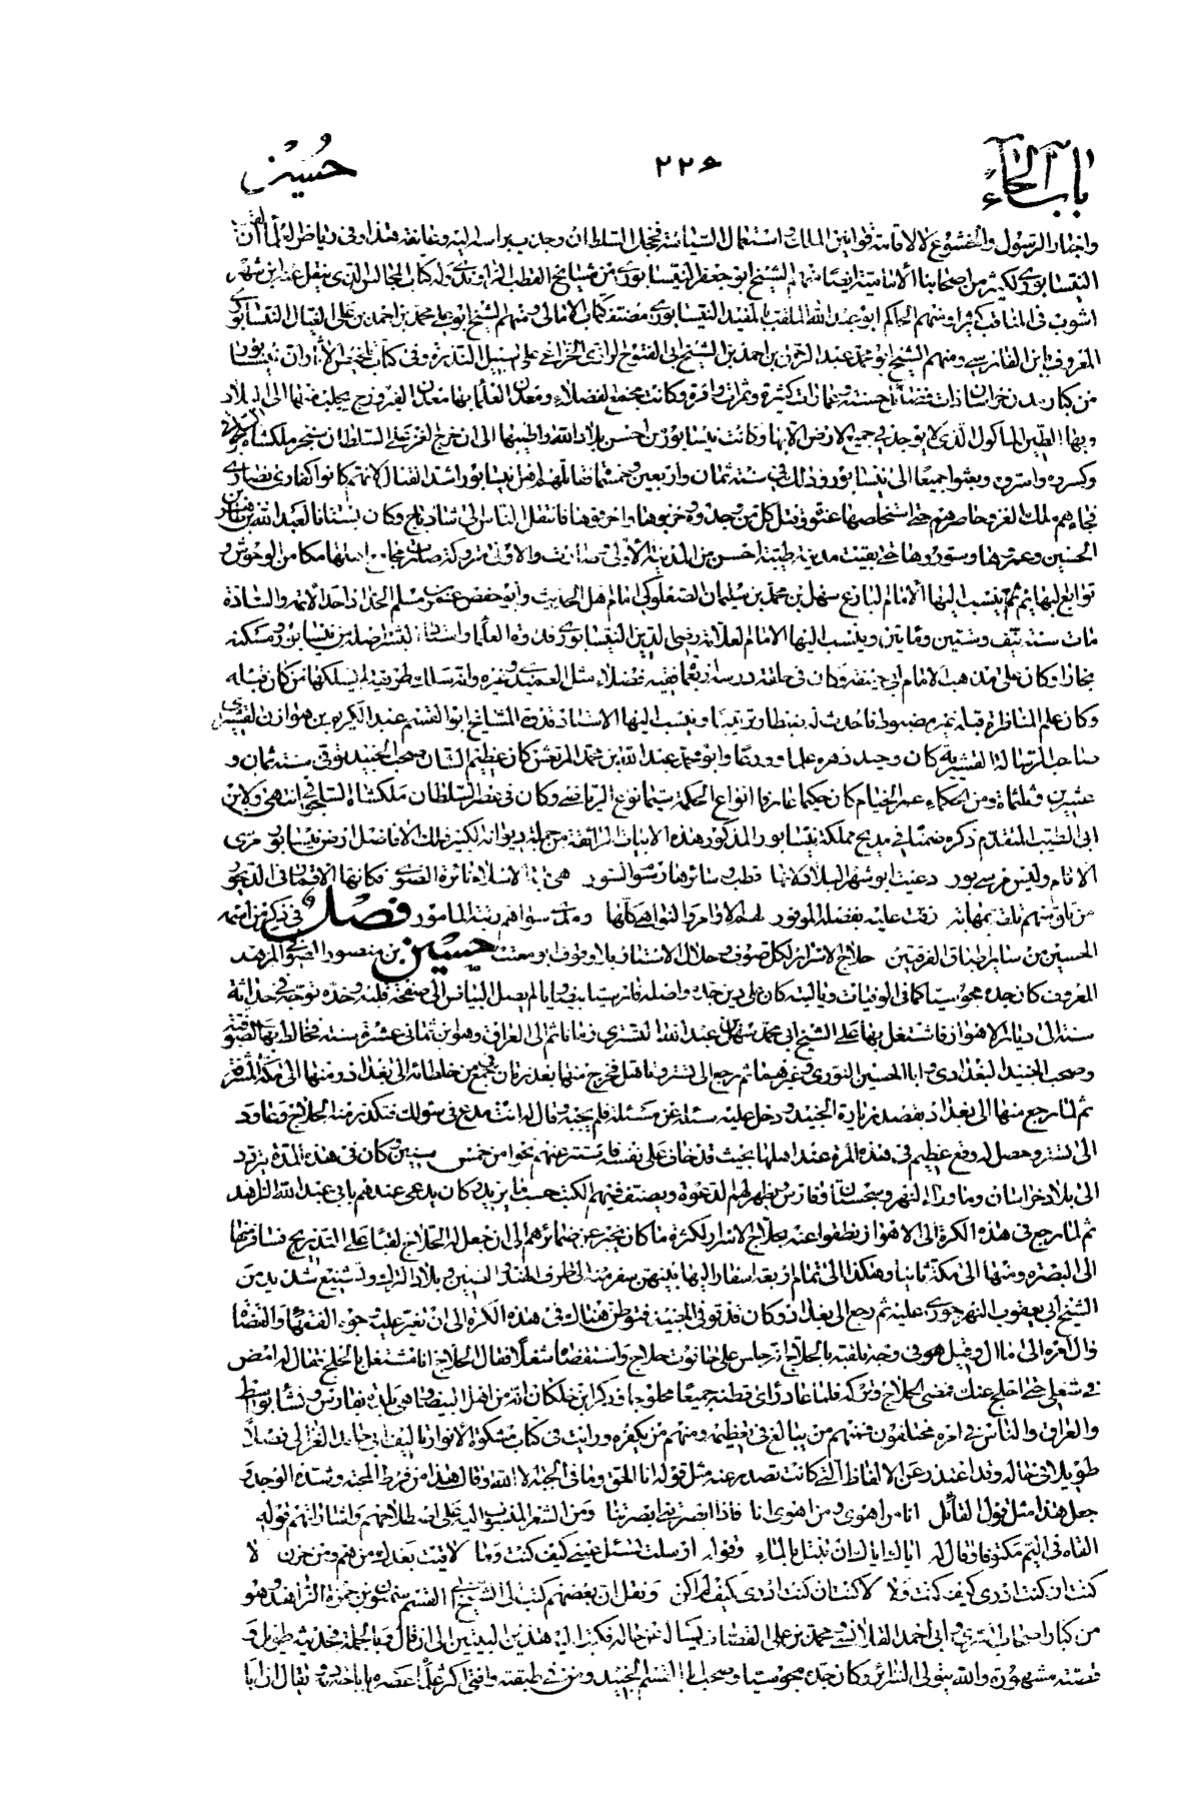 باب الحاء
٢٢۶
حسين
واختار الرسول والخشوع لا لاقامة قوانين الملك واستعمال السياسة فخجل السلطان وجلس بين
النيسابوري لكثير من اصحابنا الأمامية ايضا منهم الشيخ ابو جعفر النيسابوري من مشايخ القطب الراوندي وله كتاب المجالس الذي ينقل عنه ابن شهر
اشوب في المناقب كثيرا ومنهم الحاكم ابو عبد الله الملقب بالمفيد النيسابوري مصنف كتاب الامالي ومنهم الشيخ ابو علي محمد بن احمد بن علي الفتال النيسابوري
المعروف بابن الفارسي ومنهم الشيخ ابو محمد عبد الرحمن بن احمد بن الشيخ ابي الفتوح الرازي الخزاعي على سبيل التذكرة وفي كتاب تلخيص الأثار ان نيسابور
من كبار مدن خراسان ذات فضائل حسنة وعمارات كثيرة وثمرات وافرة وكانت مجمع الفضلاء ومعدن العلماء بها معدن الفيروزج يجلب منها الى البلاد
وبها الطين الماكول الذي لا يوجد في جميع الارض الا بها وكانت نيسابور من احسن بلاد الله واطيبها الى ان خرج الغز على السلطان سنجر بن ملكشاه السلجوقي
وكسروه واسروه وبعثوا جميعا الى نيسابور وذلك في سنة ثمان واربعين وخمسمائة فقاتلهم اهل نيسابور اشد القتال لانهم كانوا كفارا نصارى
فجاءهم ملك الغز وحاصرهم حتى استخلصها عنوة وقتل كل من وجده وخربوها واحرقوها فانتقل الناس الى شادياخ وكان بستانا لعبد الله بن طاهر بن
الحسين وعمروها وسوروها حتى بقيت مدينة طيبة احسن من المدينة الأولى
توابع ليها ثم ينسب اليها الأمام البارع سهل بن محمد بن سليمان الصعلوكي امام اهل الحديث وابو حفص عمر بن مسلم الحداد احد الائمة والسادة
مات سنة نيف وستين ومأتين وينسب اليها الامام العلامة رضي الدين النيسابوري قدوة العلماء واستاذ البشر اصله من نيسابور ومسكنه
بخارا وكان على مذهب الامام ابي حنيفة وكان في حلقة درسه اربعمأ فقيه فضلاء مثل العميدي وغيره وانه سلك طريقة لم يسلكها من كان قبله
وكان علم المناظرة قبله غير مضبوط فاحدث له ضبطا وترتيبا وينسب اليها الاستاذ قدوة المشايخ ابو القسم عبد الكريم بن هوازن القشيري
صاحب الرسالة القشيرية كان وحيد دهره علما وورعا وابو محمد عبد الله بن محمد المرتعش كان عظيم الشان صحب الجنيد توفي سنة ثمان و
عشرين وثلثمأة ومن الحكماء عمر الخيام كان حكيما عارفا انواع الحكمة سيما نوع الرياضي وكان في عصر السلطان ملكشاه السلجوقي انتهى ولابن
ابي الطيب المتقدم ذكره ضمنا في مديح مملكة نيسابور المذكور هذه الابيات الرائقة من جملة ديوانه الكبير
فصل في ذكر من اسمه
الحسين من سائر اطباق الفريقين حلاج الاسرار لكل صوفي وحلال الاستار بلا وقوف ابو مغيث حسين بن منصور الصوفي المزهد
المعروف كان جده مجوسيا كما في الوفيات وياليته كان على دين جده واصله فارسيا بيضاويا لم يصل البياض الى صفحة قلبه وخده توجه في حداثة
سنه الى ديار الاهواز فاشتغل بها على الشيخ ابي محمد سهل بن عبد الله التستري زمانا ثم الى العراق وهو ابن ثماني عشرة سنة فخالط بها الصوفية
وصحب الجنيد البغدادي وابا الحسين النوري وغيرهما ثم رجع الى تستر وتاهل فخرج منها بعد زمان في جمع من خلطائه الى بغداد ومنها الى مكة المشرفة
ثم لما رجع منها الى بغداد بقصد زيارة الجنيد ودخل عليه سئله عن مسئلة فلم يجبه وقال له انت مدع في سؤلك فتكدر منه الحلاج وعاود
الى تستر وحصل له وقع عظيم في هذه المرة عند اهلها بحيث قد خاف على نفسه فاستتر عنهم نحوا من خمس سنين وكان في هذه المدة يتردد
الى بلاد خراسان وماوراء النهر وسجستان وفارس يظهر لهم الدعوة ويصنف فيهم الكتب حسبما يريد وكان يدعى عندهم بابي عبد الله الزاهد
ثم لما رجع في هذه الكرة الى الاهواز نطقوا عنه بحلاج الاسرار لكثرة ما كان يخبر عن ضمائرهم الى ان جعل له الحلاج لقبا على التدريج فسافر منها
الى البصرة ومنها الى مكة ثانيا وهكذا الى تمام اربعة اسفار اليها بينهن سفر منه الى طرف الهند والصين وبلاد الترك وتشنيع شديد من
الشيخ ابي يعقوب النهرجوري عليه ثم رجع الى بغداد وكان قد توفي الجنيد فتوطن هناك في هذه الكرة الى ان تغير عليه وجوه الفقهاء والقضاة
وال امره الى ما ال وقيل هو في وجه تلقبه بالحلاج انه جلس على حانوت حلاج واستقضاه شغلا فقال الحلاج انا مشتغل بالحلج فقال له امض
في شغلي حتى احلج عنك فمضى الحلاج وتركه فلما عاد راى قطنه جميعا محلوجا وذكر ابن خلكان انه من اهل البيضاء وهي بلدة بفارس ونشأ بواسط
والعراق والناس في امره مختلفون فمنهم من يبالغ في تعظيمه ومنهم من يكفره ورايت في كتاب مشكوة الأنوار تاليف ابي حامد الغزالي فصلا
طويلا في حاله وقد اعتذر عن الالفاظ التي كانت تصدر عنه مثل قوله انا الحق وما في الجبة الا الله وقال هذا من فرط المحبة وشدة الوجد و
جعل هذا مثل قول القائل انا من اهوى ومن اهوى انا فاذا ابصرتني ابصرتنا ومن الشعر المنسوب اليه على اصطلاحهم واشاراتهم قوله
القاه في اليم مكتوفا وقال له اياك اياك ان تبتل بالماء وقوله ارسلت تسئل عني كيف كنت وما لاقيت بعدك من هم ومن حزن لا
كنت ان كنت ادري كيف كنت ولا لا كنت ان كنت ادري كيف لم اكن ونقل ان بعضهم كتب الى الشيخ ابي القسم سمنون بن حمزة الزاهد وهو
من كبار اصحاب السري وابي احمد القلانسي ومحمد بن علي القصاب يسأله عن حاله فكتب اليه هذين البيتين الى ان قال وبالجملة فحديثه طويل و
قصته مشهورة والله يتولى السرائر وكان جده مجوسيا وصحب ابا القسم الجنيد ومن في طبقته وافتى اكثر علماء عصره باباحة دمه ويقال ان ابا